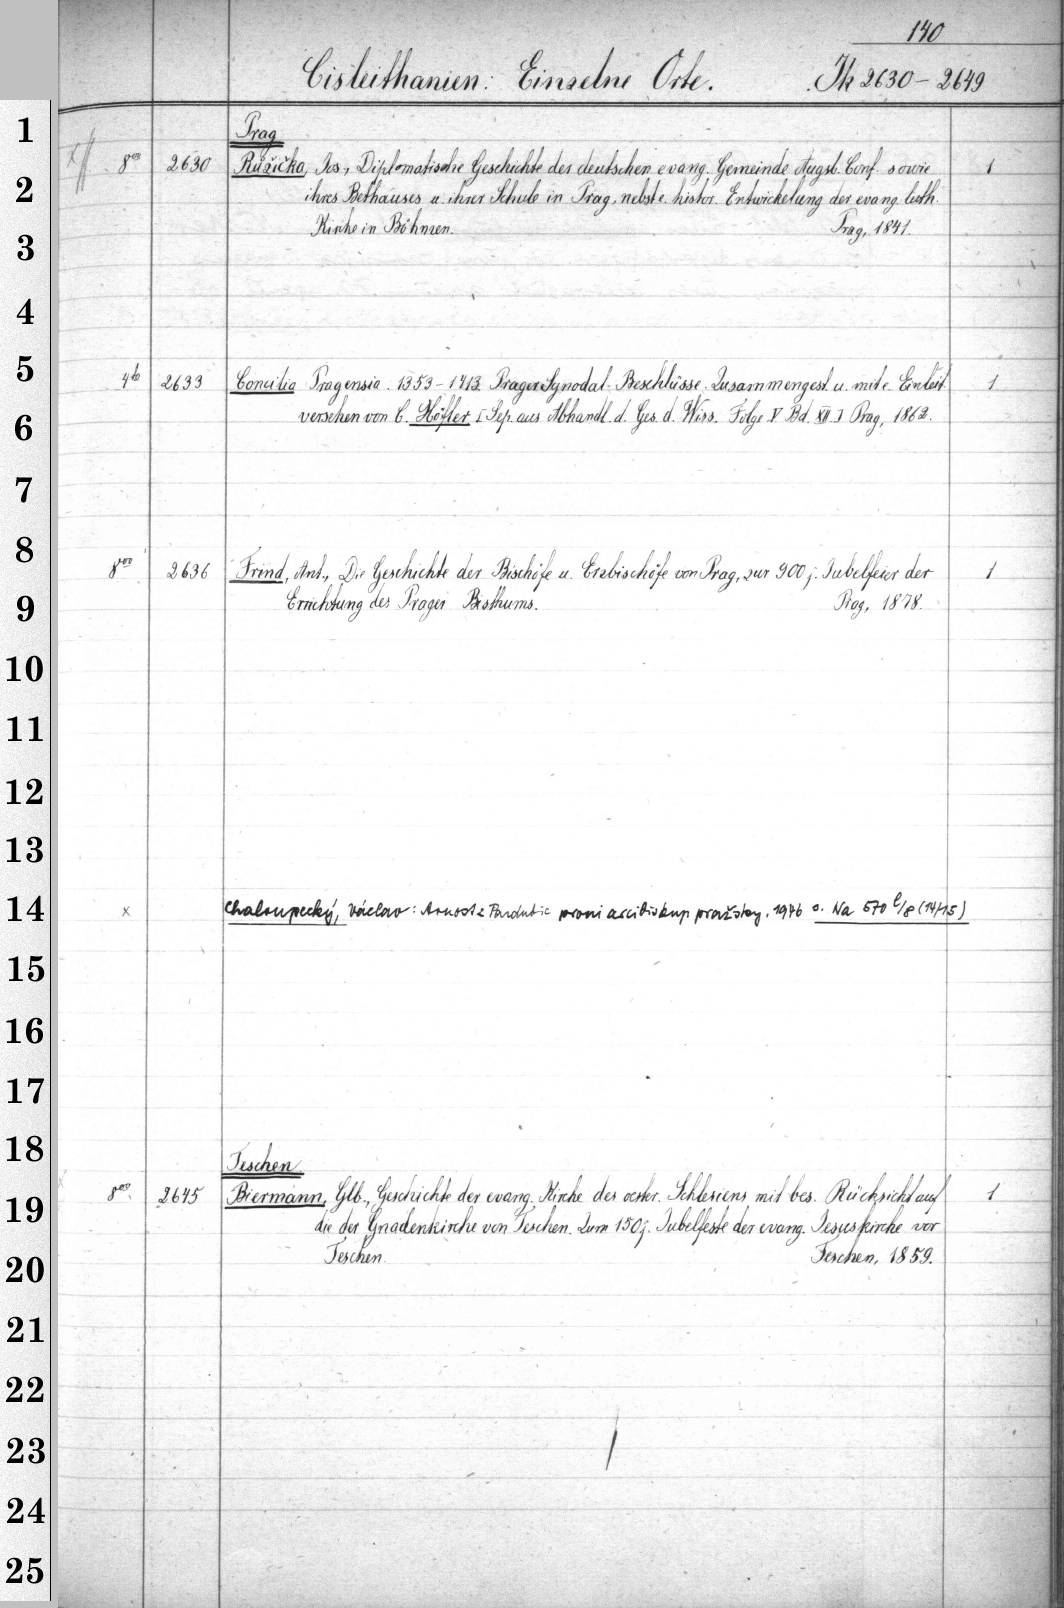 140
Cisleithanien: Einzelne Orte. Ik 2630 – 2649
1
Prag
8vo 2630 Růžička, Jos., Diplomatische Geschichte der deutschen evang. Gemeinde Augsb. Conf. sowie 1
2
ihres Bethauses u. ihrer Schule in Prag, nebst e. histor. Entwickelung der evang. luth.
Kirche in Böhmen. Prag, 1841.
3
4
5
4to 2633 Concilia Pragensia. 1353–1413. Prager Synodal-Beschlüsse. Zusammengest. u. mit e. Einleit. 1
versehen von C. Höfler [Sep. aus Abhandl. d. Ges. d. Wiss. Folge V Bd. XII.] Prag, 1862.
6
7
8
8vo 2636 Frind, Ant., Die Geschichte der Bischöfe u. Erzbischöfe von Prag, zur 900 j. Jubelfeier der 1
9
Errichtung des Prager Bisthums. Prag, 1878.
10
11
12
13
14
x Chaloupecký, Václav: Arnošt z Pardubic první arcibiskup pražský. 1946 s. Na 570 l/8 (14/15)
15
16
17
18
Teschen
8vo 2645 Biermann, Glb., Geschichte der evang. Kirche des oester. Schlesiens mit bes. Rücksicht auf 1
19
die der Gnadenkirche von Teschen. Zum 150 j. Jubelfeste der evang. Jesuskirche vor
Teschen. Teschen, 1859.
20
21
22
23
24
25